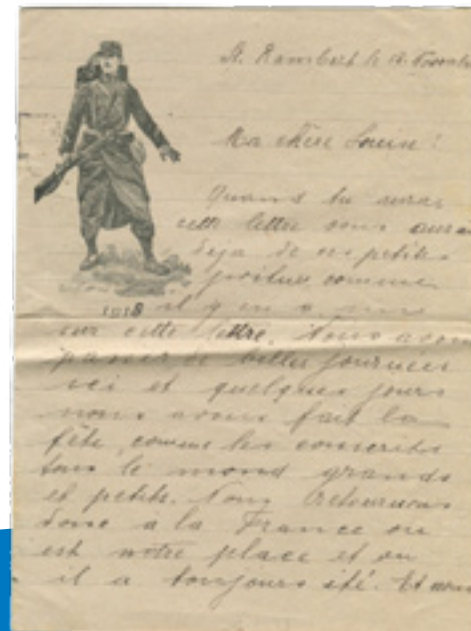 St. Rambert le 19. Novemb
Ma chère Louise!
Quand tu auras
cette lettre vous aurez
deja de ces petits
poilus comme
1918 il y en a une
sur cette lettre. Nous avons
passer de belles journées
ici et quelques jours
nous avons fait la
fête, comme les conscrits
tous le mond grands
et petits. Nous retournons
donc a la France ou
est notre place et ou
il a toujours été. Et nous